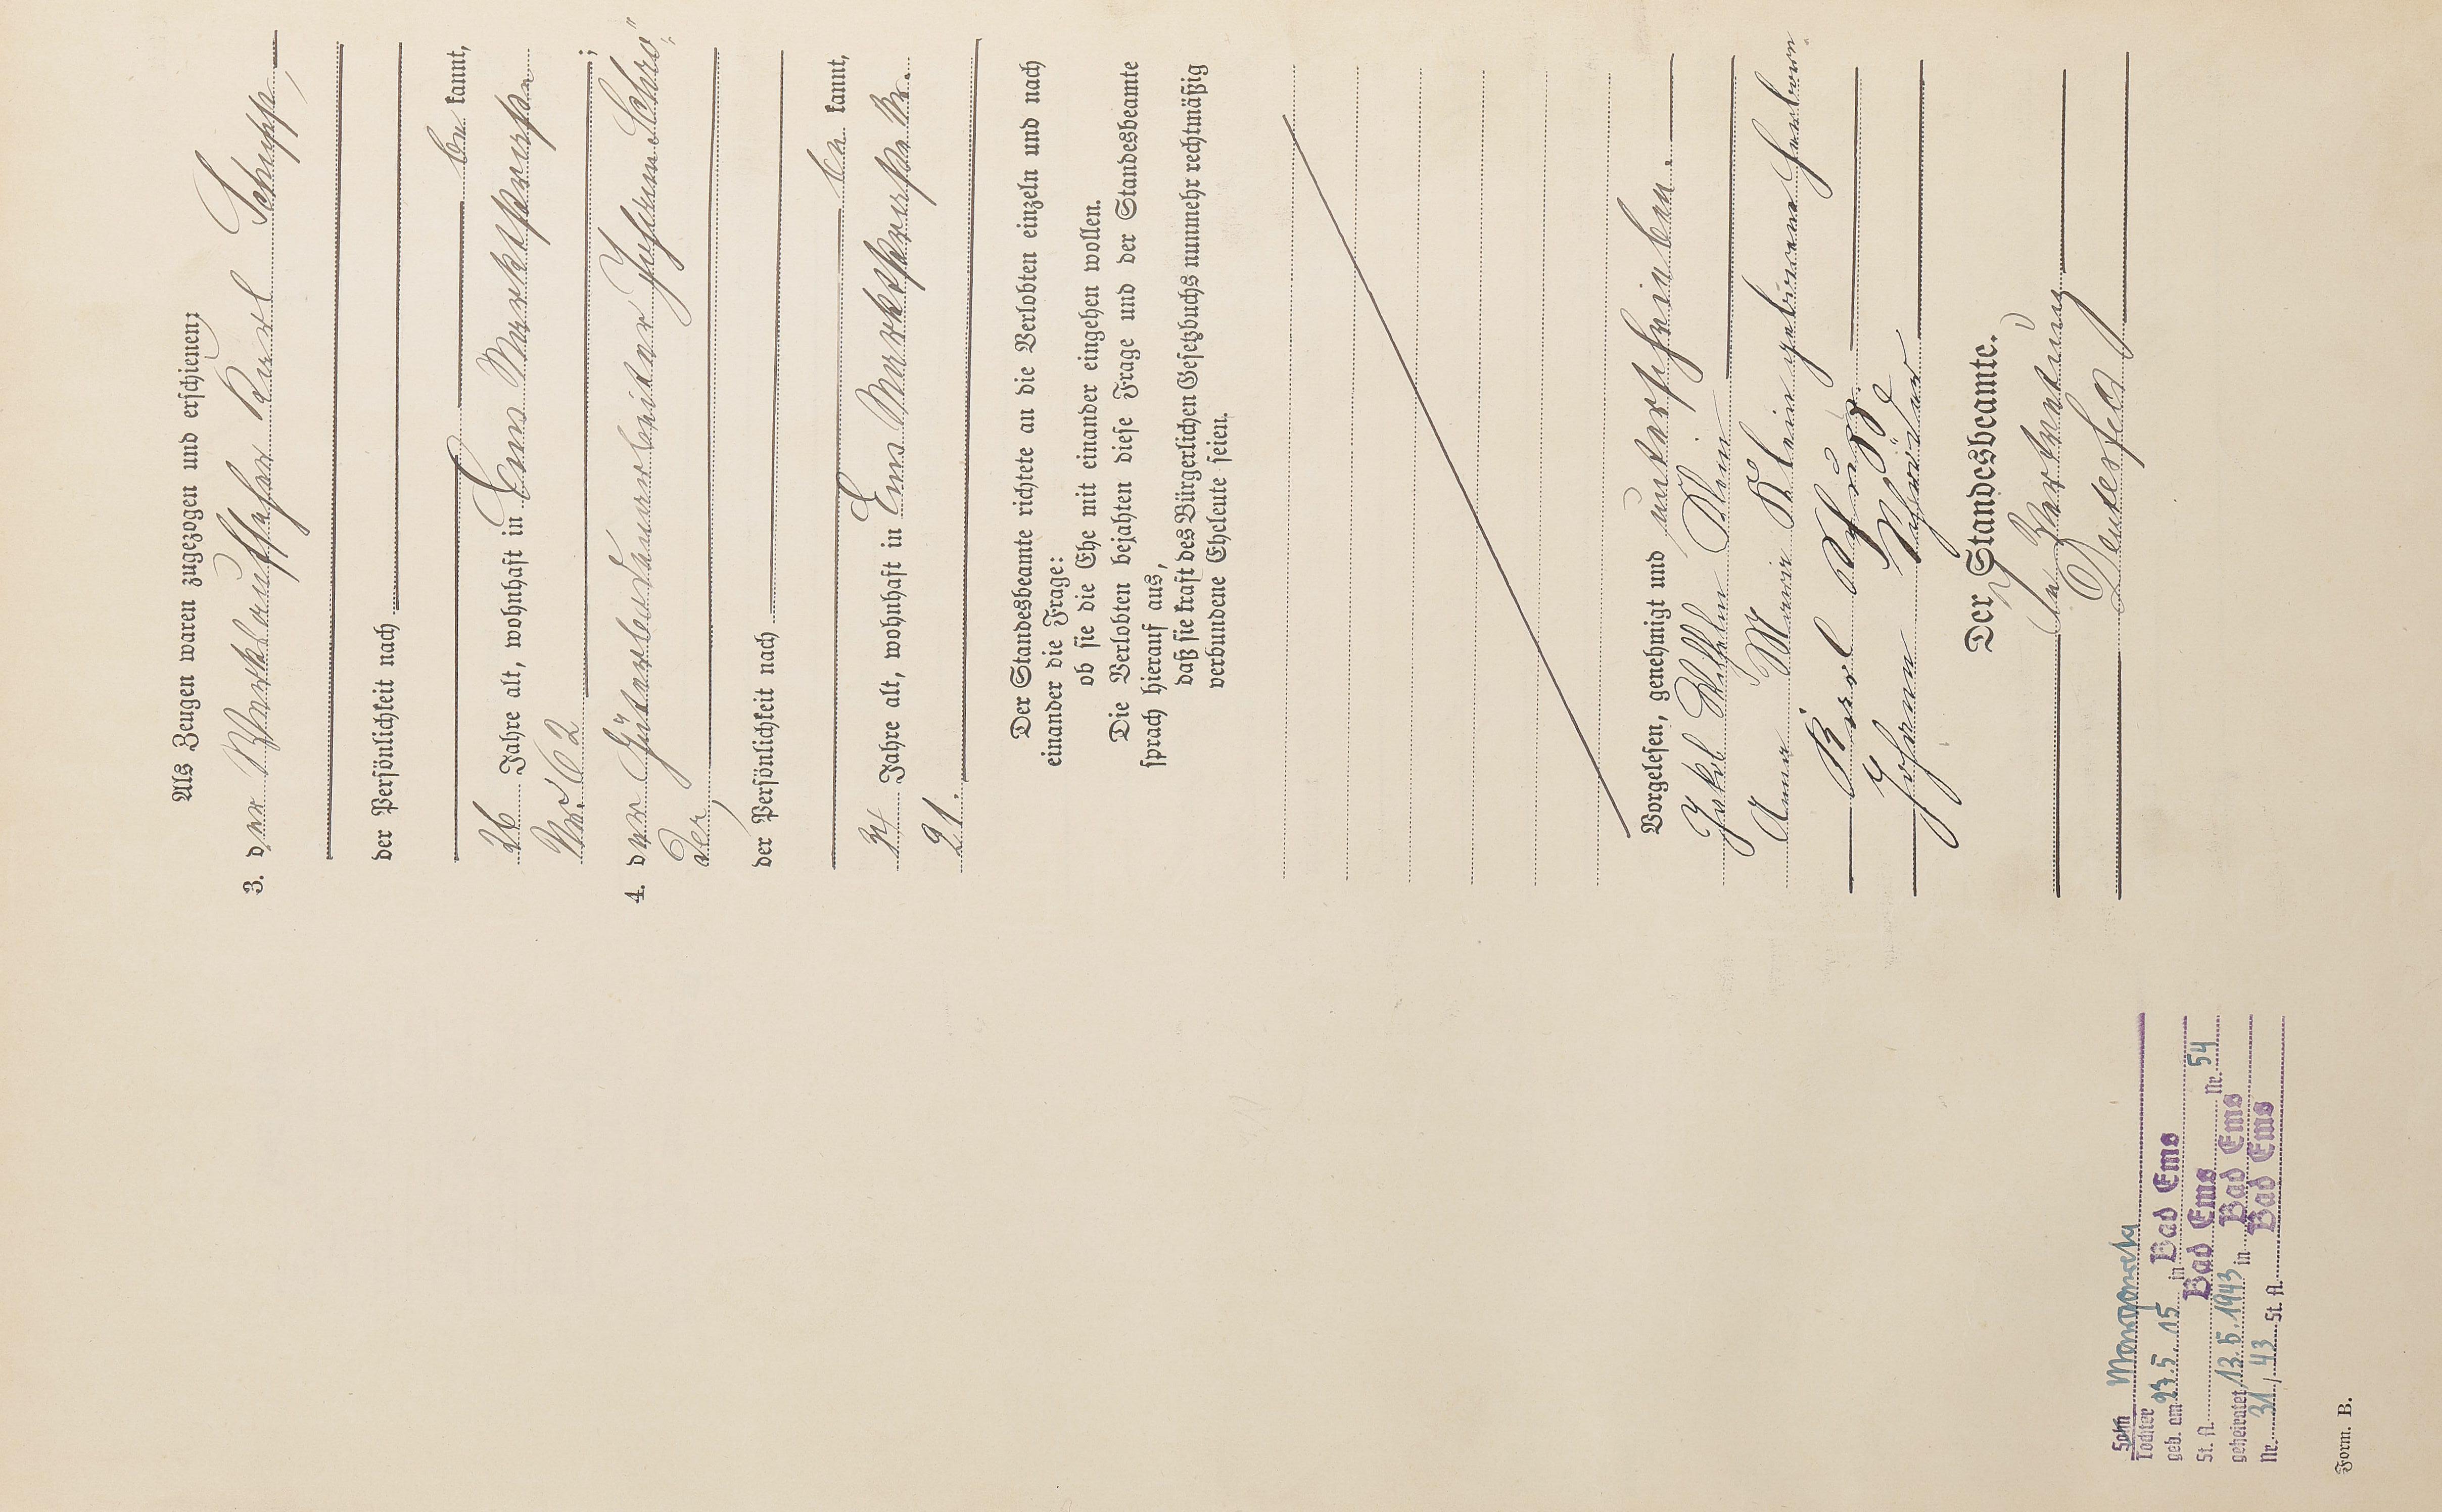 Als Zeugen waren zugezogen und erschienen:
3. der Werkaufseher Karl Schupp,
der Persönlichkeit nach
be kannt,
26 Jahre alt, wohnhaft in Ems Marktstraße
Nr. 62 ;
4. der Güterbodenarbeiter Johann Schrö"
der,
der Persönlichkeit nach
be kannt,
24 Jahre alt, wohnhaft in Ems Marktstraße Nr.
21.
Der Standesbeamte richtete an die Verlobten einzeln und nach
einander die Frage:
ob sie die Ehe mit einander eingehen wollen.
Die Verlobten bejahten diese Frage und der Standesbeamte
sprach hierauf aus,
daß sie kraft des Bürgerlichen Gesetzbuchs nunmehr rechtmäßig
verbundene Eheleute seien.
Vorgelesen, genehmigt und unterschrieben.
Jakob Wilhelm Klein
Anna Maria Klein geborene
Karl Schupp
Johann Schröder
Der Standesbeamte.
In Vertretung
Sohn Margareta
Tochter
geb. am 23.5.15 in Bad Ems
St. A. Bad Ems Nr. 54
geheiratet 13.5.1943 in Bad Ems
Nr. 31/43 St. A. Bad Ems
Form. B.